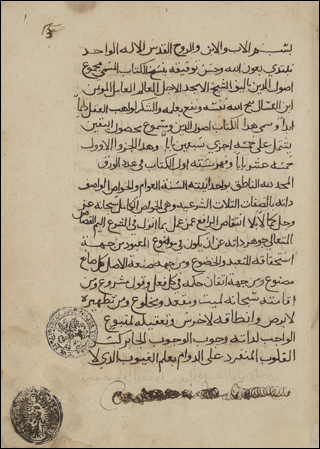 بسم الاب والابن والروح القدس الاله الواحد
نبتدي بعون الله وحسن توفيقه بنسخ الكتاب المسمى مجموع
اصول الدين تاليف الشيخ الامجد الاجل العالم العامل المؤتمن
ابن العسال نيح الله نفسه ونفع بعلمه والشكر لواهب العقل دايما
ابدا وسمى هذا الكتاب اصول الدين ومسموع محصول اليقين
يشتمل على خمسة اجزي سبعين بابا وهذا الجزو الاول
خمسة عشر بابا وفهرسته اول الكتاب في عدد الورق
المجد لله الناطق بواحدانيته السنة العوام والخواص الواصف
ذاته بالصفات الثلاث الشرعية وهي الخواص الكامل سبحانه عز
وجل كمالا بلا انتقاص الرافع عن عمل بما انزل في الشرع اليم القصاص
المتعالي جوهر ذاته عن ان يكون في موضوع المعبود من جهة
استحقاقه التعبد والخضوع ومن جهة صنعة الاصل كل صانع
مصنوع ومن جهة اتقان حكمه في كل فعل وقول مشروع ومن
اقامته سبحانه لميت ومقعد ومخلوع ومن تطهيره
لابرص وانطاقه لاخرس وتعقيله لمتبوع
الواجب لذاته وجوب الوجوب الجابر كسر
القلوب المنفرد على الدوام بعلم الغيوب الذي لا